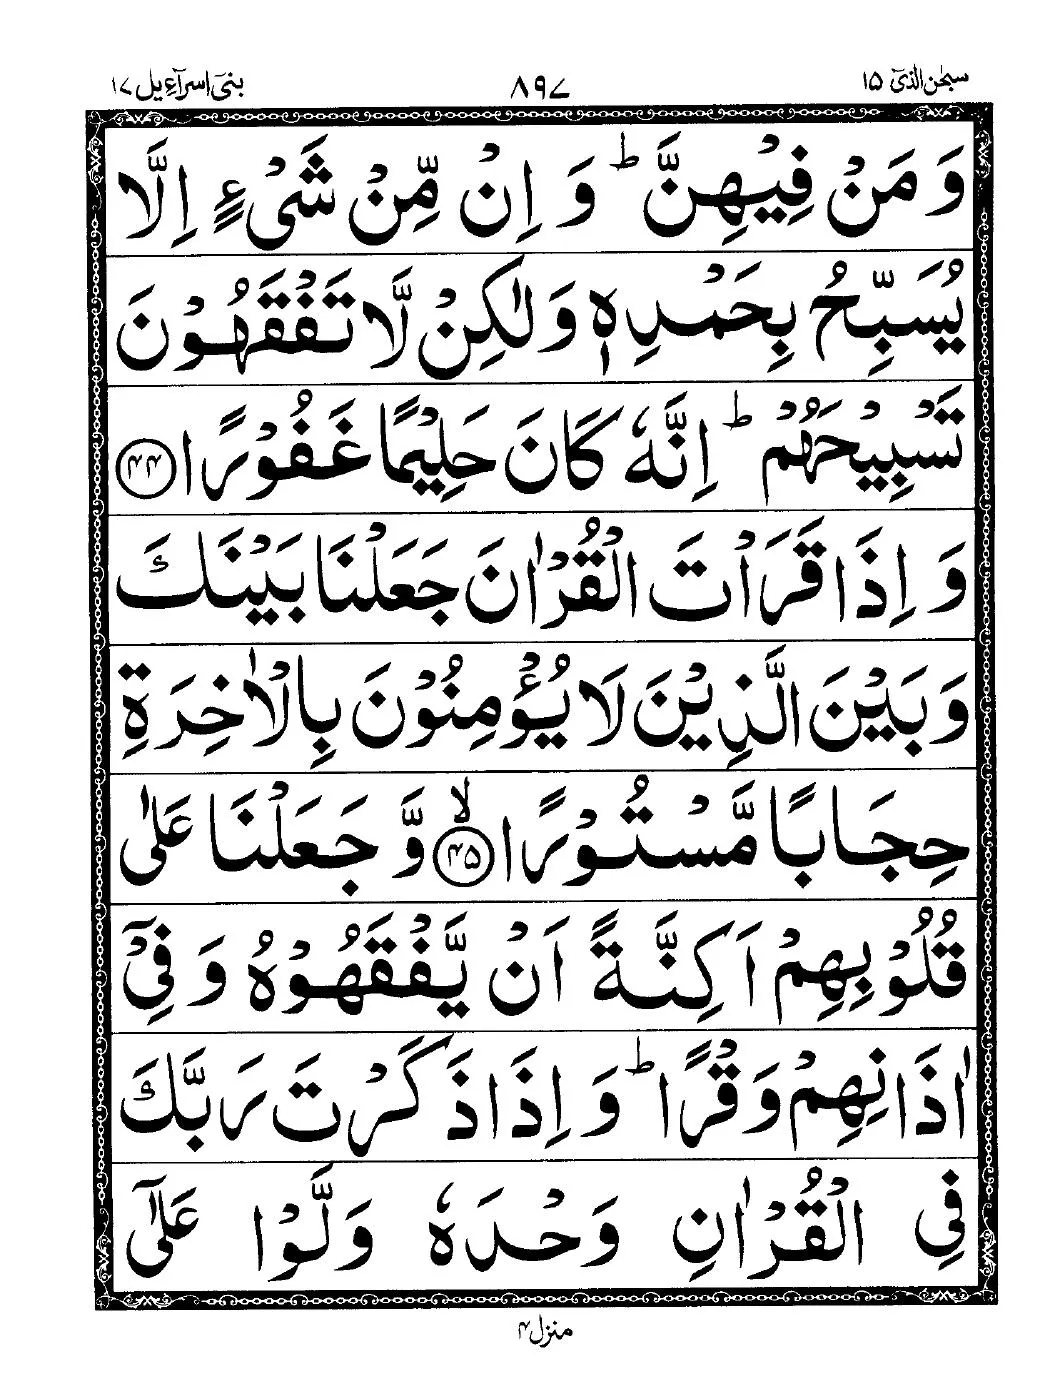 سبحٰن الذیٓ ۱۵
۸۹۷
بنیٓ اسرآءیل ۱۷
وَ مَنْ فِیْهِنَّ ؕ وَ اِنْ مِّنْ شَیْءٍ اِلَّا
یُسَبِّحُ بِحَمْدِهٖ وَ لٰكِنْ لَّا تَفْقَهُوْنَ
تَسْبِیْحَهُمْ ؕ اِنَّهٗ كَانَ حَلِیْمًا غَفُوْرًا ﴿۴۴﴾
وَ اِذَا قَرَاْتَ الْقُرْاٰنَ جَعَلْنَا بَیْنَكَ
وَ بَیْنَ الَّذِیْنَ لَا یُؤْمِنُوْنَ بِالْاٰخِرَةِ
حِجَابًا مَّسْتُوْرًا ﴿۴۵﴾ ۙ وَّ جَعَلْنَا عَلٰی
قُلُوْبِهِمْ اَكِنَّةً اَنْ یَّفْقَهُوْهُ وَ فِیْۤ
اٰذَانِهِمْ وَقْرًا ؕ وَ اِذَا ذَكَرْتَ رَبَّكَ
فِی الْقُرْاٰنِ وَحْدَهٗ وَلَّوْا عَلٰۤی
منزل ۴